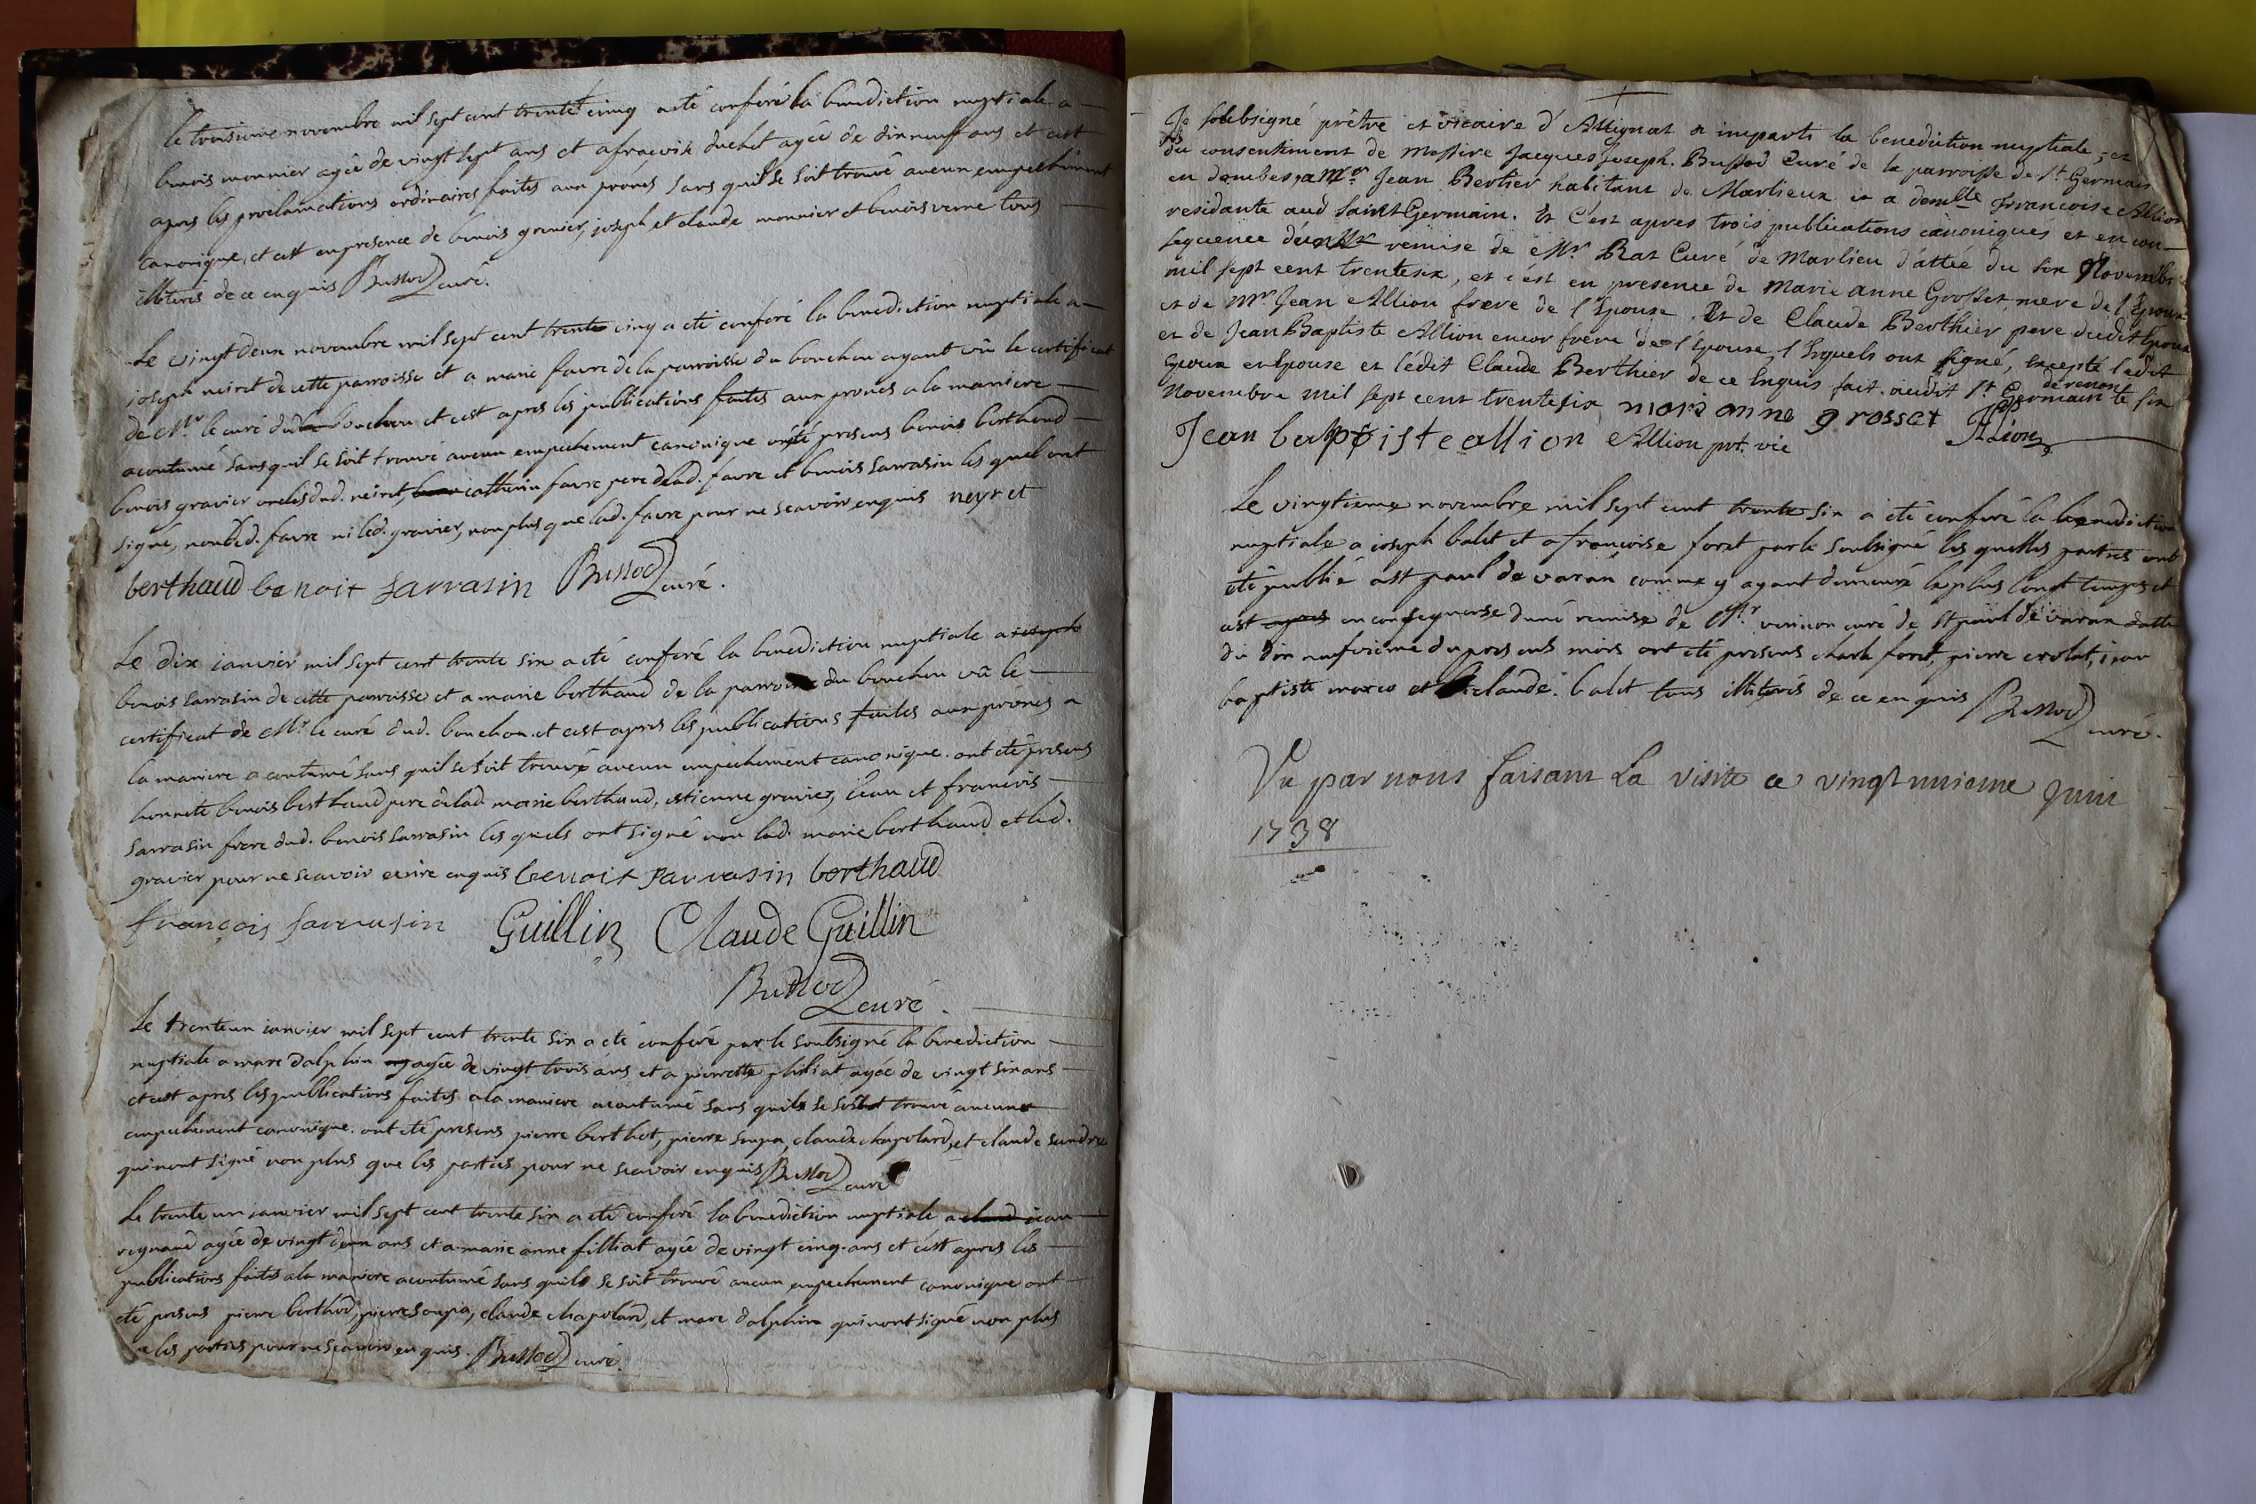 Le troisieme novembre mil sept cent trente cinq a eté conferé la benediction nuptiale a
benois monnier agée de vingt sept ans et a francoise duchet agée de dixneuff ans et cest
apres les proclamations ordinaires faites aux prones sans quil se soit trouvé aucun empechement
canonique, et cest en presence de benois grenier, joseph et claude monnier et benois verne tous
illiterés de ce enquis Bussod curé.
Le vingt deux novembre mil sept cent trente cinq a eté conferé la benediction nuptiale a
joseph neiret de cette parroisse et a marie favre de la parroisse du bouchou ayant vû le certificat
de Mr le curé dud. bouchou et cest apres les publications faites aux prones a la maniere
acoutumé sans quil se soit trouvé aucun empechement canonique presens benois berthaud
benois gravier dud. neiret, favre pere delad. favre et benois sarrasin les quel ont
signé, non led. favre ni led. gravier, non plus que lad. favre pour ne scavoir enquis neyret
berthaud benoit sarrasin Bussod curé.
Le dix janvier mil sept cent trente six a eté conferé la benediction nuptiale a joseph
benois sarrasin de cette parroisse et a marie berthaud de la parroisse du bouchou vû le
certificat de Mr le curé dud. bouchou et cest apres les publications faites aux prones a
la maniere acoutumé sans quil se soit trouvé aucun empechement canonique. ont eté presens
honnete benois berthaud pere delad. marie berthaud, estienne gravier, jean et francois
sarrasin frere dud. benois sarrasin les quels ont signé non lad. marie berthaud et led.
gravier pour ne scavoir ecrire enquis benoit sarrasin berthaud
françois sarrasin Guillin Claude Guillin
Bussod curé.
Le trente un janvier mil sept cent trente six a eté conferé par le soubsigné la benediction
nuptiale a marc dalphin agée de vingt trois ans et a pierrette philiat agée de vingt six ans
et cest apres les publications faites a la maniere acoutumé sans quil se soit trouvé aucun
empechement canonique. ont eté presens pierre berthet, pierre supa, claude chapolard, et claude
qui nont signé non plus que les parties pour ne scavoir enquis Bussod curé
Le trente un janvier mil sept cent trente six a eté conferé la benediction nuptiale a claud jean
reynaud agée de vingt deux ans et a marie anne filliat agée de vingt cinq ans et cest apres les
publications faites a la maniere acoutumé sans quil se soit trouvé aucun empechement canonique ont
eté presens pierre berthod, pierre soupa, claude chapolard, et marc dalphin qui nont signé non plus
les parties pour ne scavoir enquis. Bussod curé.
Je soubsigné prêtre et vicaire d'Attignat ai imparti la benediction nuptiale; et
du consentement de Messire Jacques Joseph. Bussod Curé de la parroisse de St Germain
en dombes, a Mr Jean Bertier habitant de Marlieux et a demlle Francoise Allion
residante aud Saint Germain. Et c'est apres trois publications canoniques et en con-
sequence d'une remise de Mr Rat Curé de Marlieu d'attée du six Novembre
mil sept cent trente six, et c'est en presence de Marie anne Grosset mere de l'Epouse
et de Mr Jean Allion frere de l'Epouse. Et de Claude Berthier pere dudit Epoux
et de Jean Baptiste Allion encor frere de l'Epouse, lesquels ont signé, excepté ledit
Epoux et Epouse et ledit Claude Berthier de ce Enquis fait audit St Germain
de renom le six
Novembre mil sept cent trente six mari anne grosset Allion
Jean batpisteallion Allion prt. vic
Le vingtieme novembre mil sept cent trente six a eté conferé la benediction
nuptiale a joseph balet et a francoise foret par le soubsigné les quelles parties ont
eté publié a st paul de varan comme y ayant demeuré le plus longt temps et
cest apres en consequense d'une remise de Mr curé de St paul de varan datte
du dix neufvieme du presens mois ont eté presens charle foret, pierre, jean
baptiste et claude balet tous illiterés de ce enquis Bussod
curé.
Vu par nous faisant La visite ce vingt unieme Juin
1738